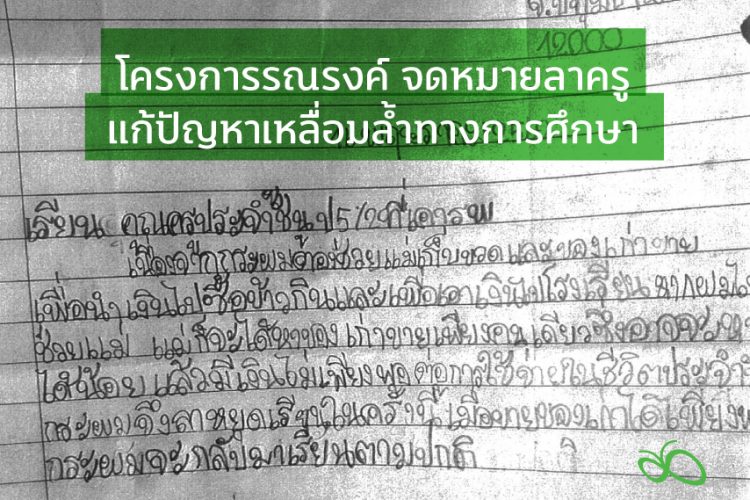 12000
โครงการรณรงค์ จดหมายลาครู
แก้ปัญหาเหลื่อมล้ำทางการศึกษา
เรียน คุณครูประจำชั้น ป 5/2 ที่เคารพ
เนื่องจากกระผมต้องช่วยแม่เก็บขวดและของเก่าขาย
เพื่อนำเงินไปซื้อข้าวกินและเพื่อเอาเงินไปโรงเรียน หากผมไ
ช่วยแม่ แม่ก็จะได้หาของเก่าขายเพียงคนเดียวซึ่งอาจจะห
ได้น้อย แล้วมีเงินไม่เพียงพอต่อการใช้จ่ายในชีวิตประจำ
กระผมจึงลาหยุดเรียนในครั้งนี้ เมื่อขายของเก่าได้เพียงพ
กระผมจะกลับมาเรียนตามปกติ